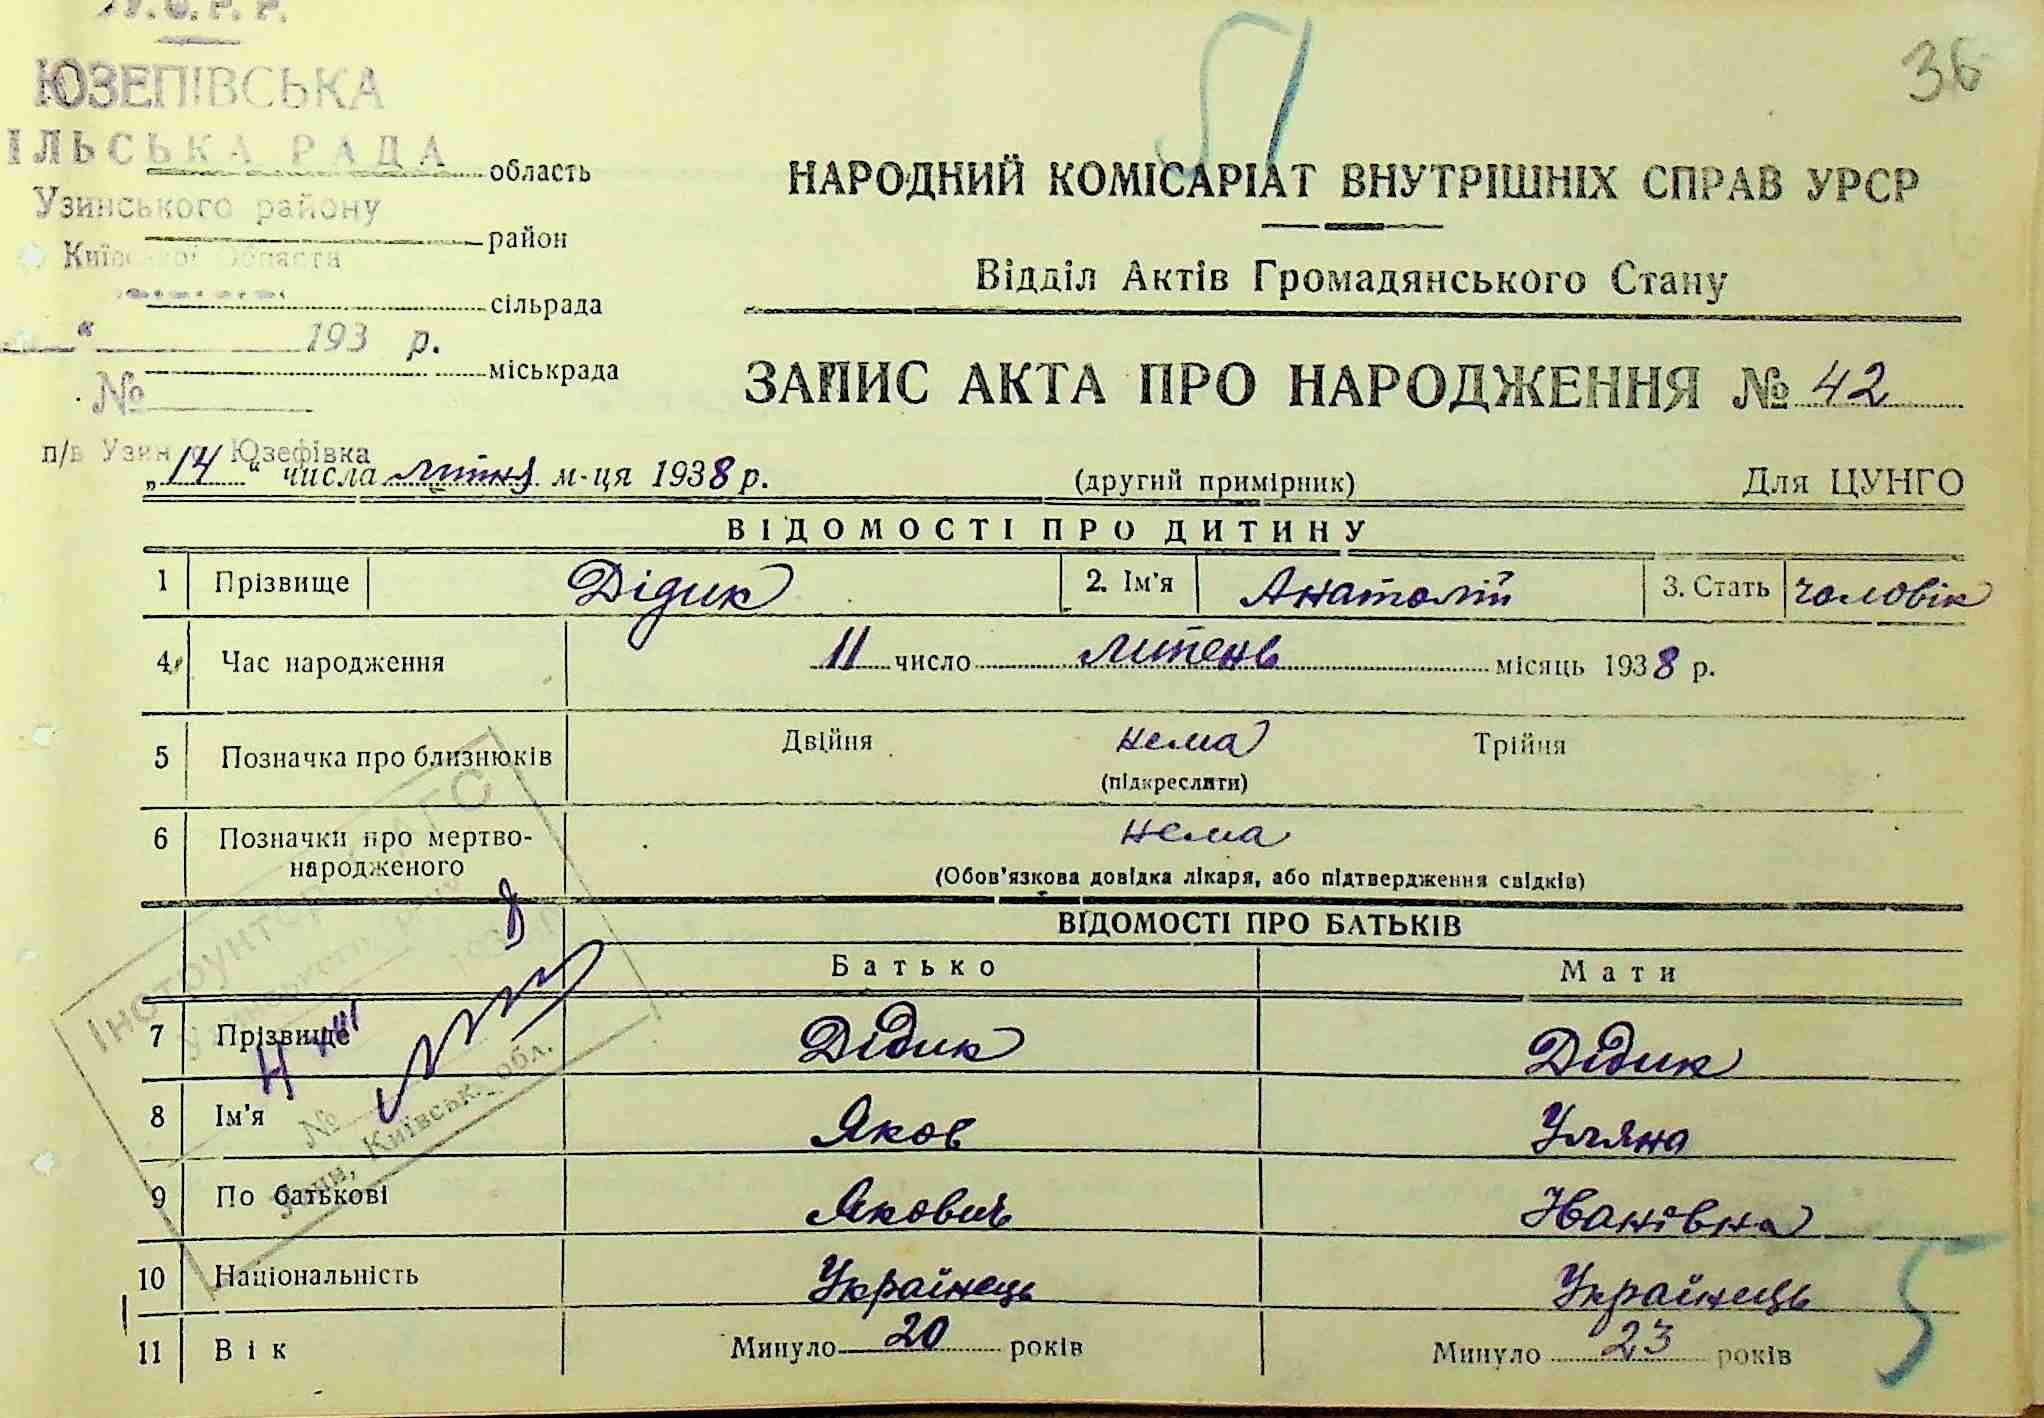 У. С. Р. Р.
ЮЗЕПІВСЬКА
ІЛЬСЬКА РАДА
Узинського району
Київської Области
“ 193 р.
№
п/в Узин с. Юзефівка
область
район
сільрада
міськрада
51
36
НАРОДНИЙ КОМІСАРІАТ ВНУТРІШНІХ СПРАВ УРСР
Відділ Актів Громадянського Стану
ЗАПИС АКТА ПРО НАРОДЖЕННЯ № 42
„14“ числа липня м-ця 1938 р. (другий примірник) Для ЦУНГО
ВІДОМОСТІ ПРО ДИТИНУ
1 Прізвище Дідик 2. Ім'я Анатолій 3. Стать чоловік
4 Час народження 11 число липень місяць 1938 р.
5 Позначка про близнюків Двійня нема Трійня
(підкреслити)
6 Позначки про мертво-
народженого нема
(Обов'язкова довідка лікаря, або підтвердження свідків)
ВІДОМОСТІ ПРО БАТЬКІВ
Батько Мати
7 Прізвище Дідик Дідик
8 Ім'я Яков Уляна
9 По батькові Якович Іванівна
10 Національність Українець Українець
11 Вік Минуло 20 років Минуло 23 років
Інструктор ЗАГС
193 8 р.
№
Узин, Київськ. обл.
5